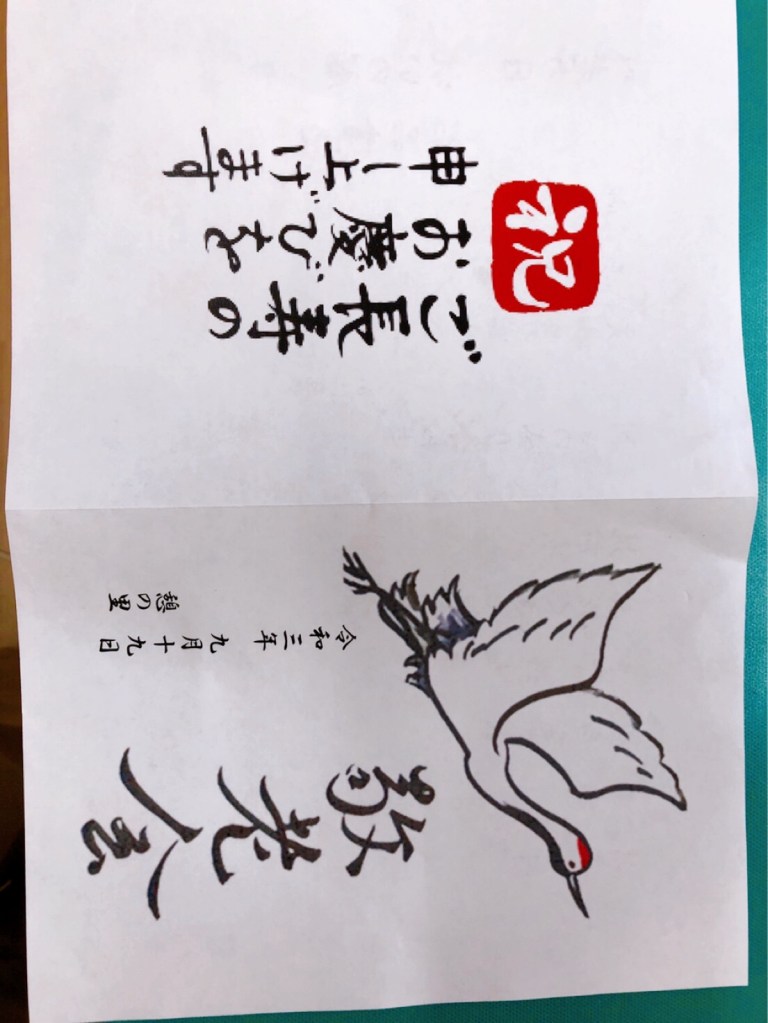 敬老会
令和三年 九月十九日
憩の里
祝
ご長寿の
お慶びを
申し上げます